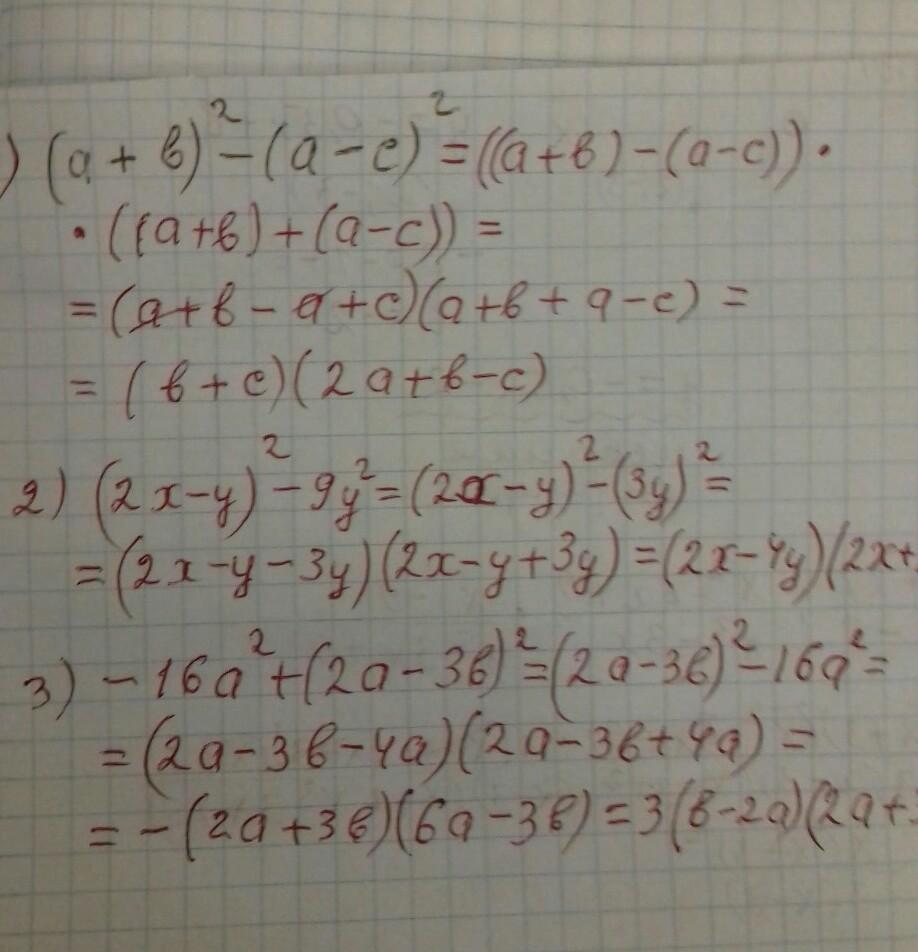 ) (a + в)² - (a - c)² = ((a + в) - (a - c)) ·
· ((a + в) + (a - c)) =
= (a + в - a + c)(a + в + a - c) =
= (в + c)(2a + в - c)
2) (2x - y)² - 9y² = (2x - y)² - (3y)² =
= (2x - y - 3y)(2x - y + 3y) = (2x - 4y)(2x +
3) - 16a² + (2a - 3в)² = (2a - 3в)² - 16a² =
= (2a - 3в - 4a)(2a - 3в + 4a) =
= - (2a + 3в)(6a - 3в) = 3(в - 2a)(2a +